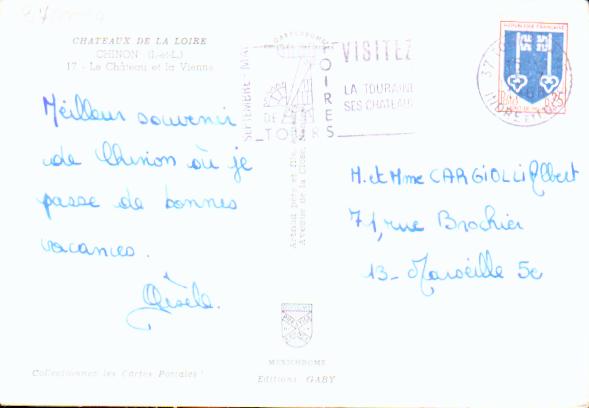 CHATEAUX DE LA LOIRE
CHINON (I.-et-L.)
17 - Le Château et la Vienne
Meilleur souvenir
de Chinon où je
passe de bonnes
vacances.
Gisèle.
GASTRONOMIQUES
SEPTEMBRE - MAI
FOIRES
DE
TOURS
VISITEZ
LA TOURAINE
SES CHATEAUX
REPUBLIQUE FRANÇAISE
0,25
37
INDRE ET LOIRE
M. et Mme CARGIOLLI Albert
71, rue Brochier
13 - Marseille 5e
MEXICHROME
Editions GABY
Collectionnez les Cartes Postales !